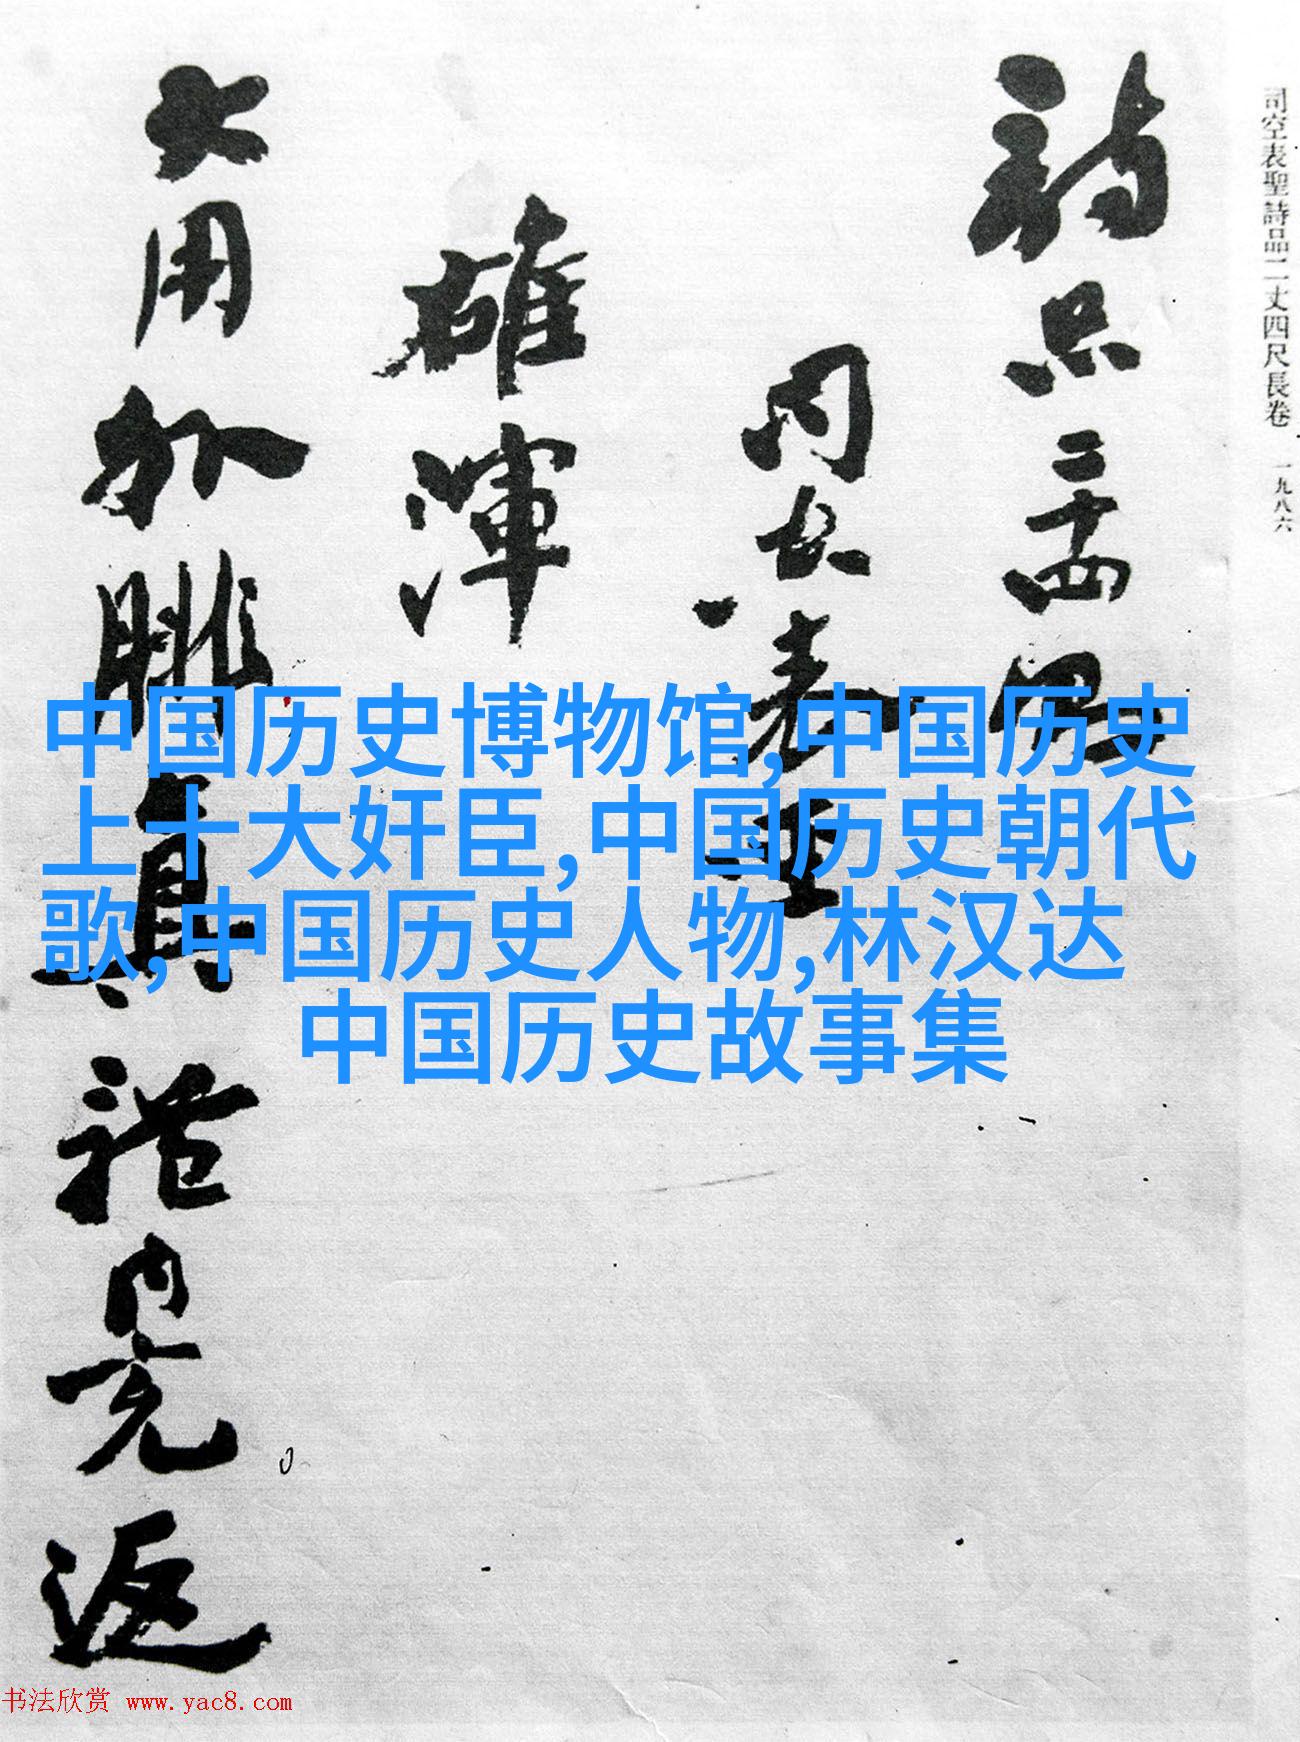 司空表聖詩品二丈四尺長卷 一九八六
詩品二十四則
司空表聖
雄渾
大用外腓真體內充返
中国历史博物馆,中国历史
上十大奸臣,中国历史朝代
歌,中国历史人物,林汉达
中国历史故事集
书法欣赏 www.yac8.com